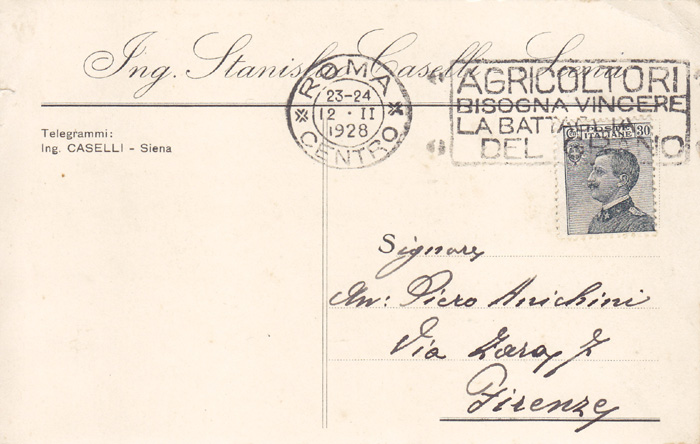 Ing. Stanislao Caselli - Siena
ROMA
CENTRO
23-24
12 · II
1928
AGRICOLTORI
BISOGNA VINCERE
LA BATTAGLIA
DEL GRANO
ITALIANE 30
Telegrammi:
Ing. CASELLI - Siena
Signore
Piero Anichini
Via Zara 7
Firenze